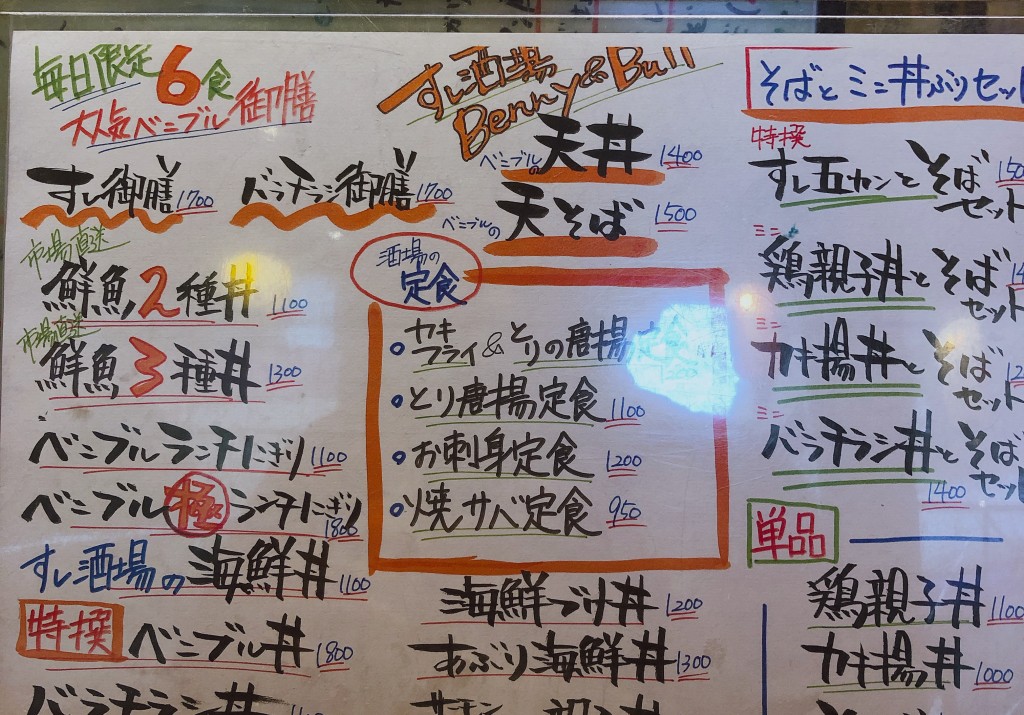 毎日限定6食
大人気ベニブル御膳
すし御膳 1700
バラチラシ御膳 1700
市場直送
鮮魚2種丼 1100
市場直送
鮮魚3種丼 1300
ベニブルランチにぎり 1100
ベニブル極ランチにぎり 1800
すし酒場の海鮮丼 1100
特撰 ベニブル丼 1800
バラチラシ丼
すし酒場
Benny&Bull
ベニブルの天丼 1400
ベニブルの天そば 1500
酒場の
定食
カキフライ&とりの唐揚
とり唐揚定食 1100
お刺身定食 1200
焼サバ定食 950
海鮮づけ丼 1200
あぶり海鮮丼 1300
そばとミニ丼ぶりセット
特撰
すし五カンとそばセット
ミニ
鶏親子丼とそばセット
ミニ
カキ揚丼とそばセット
ミニ
バラチラシ丼とそばセット
1400
単品
鶏親子丼 1100
カキ揚丼 1000